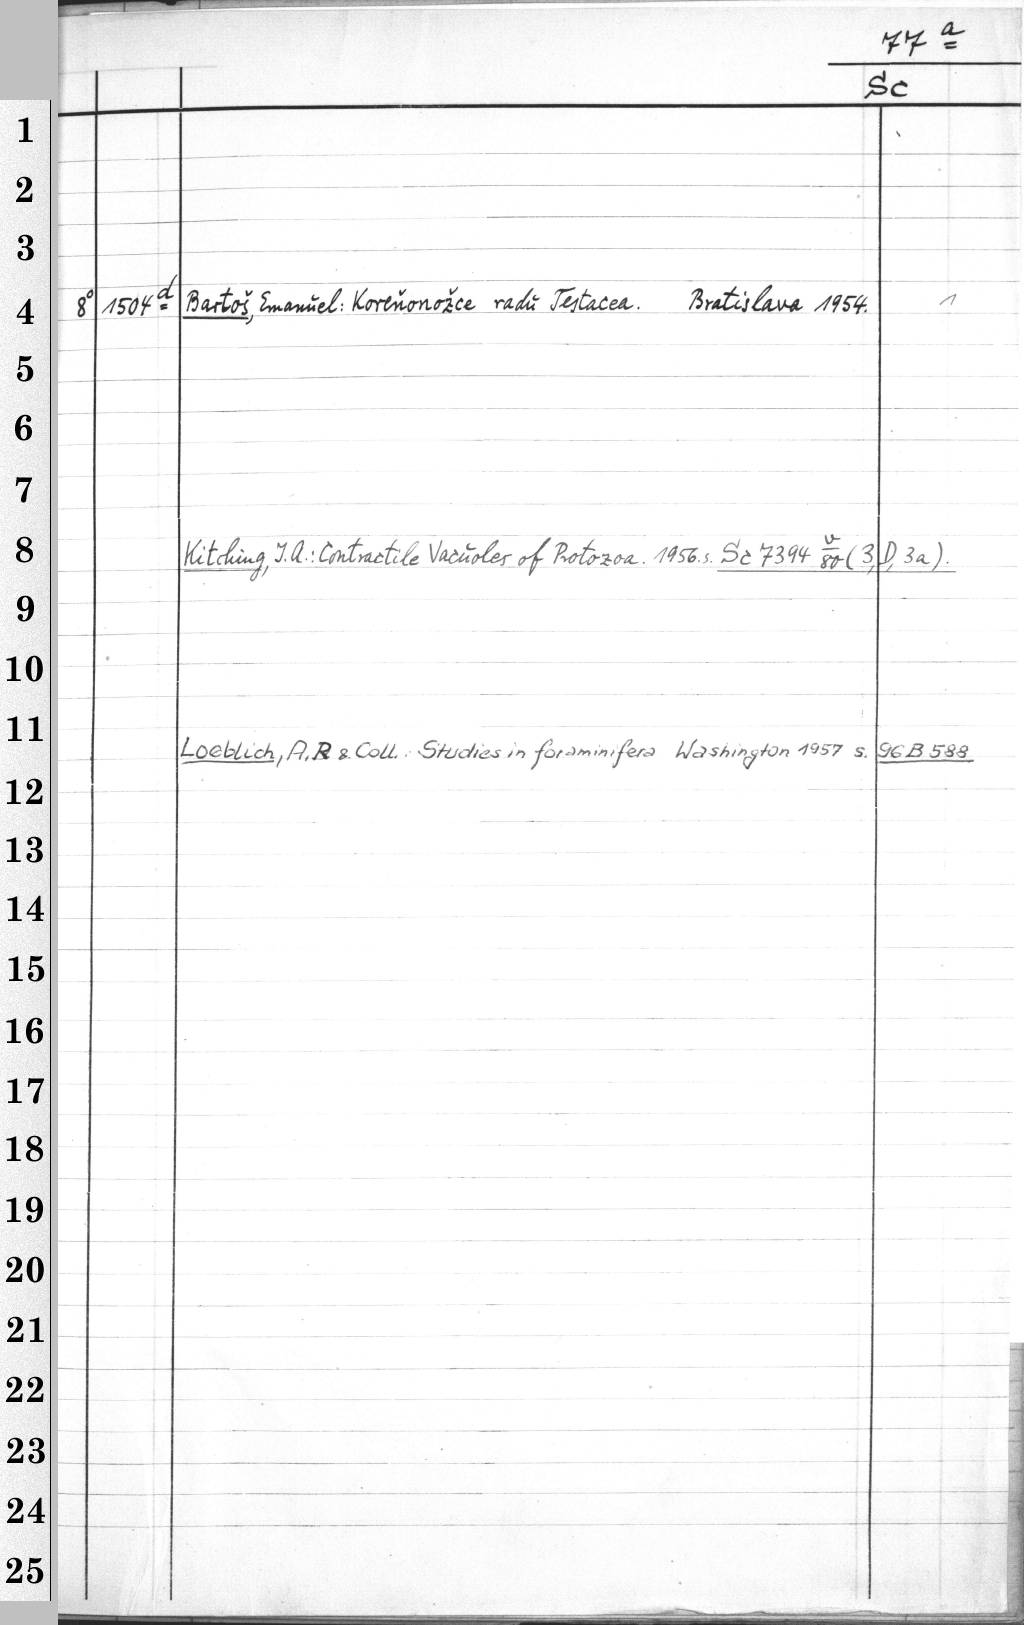 77 a
Sc
1
2
3
4 8° 1504 d Bartoš, Emanuel: Koreňonožce radu Testacea. Bratislava 1954. 1
5
6
7
8 Kitching, J.A.: Contractile Vacuoles of Protozoa. 1956. s. Sc 7394 v/80 (3, D, 3a).
9
10
11 Loeblich, A.R & Coll.: Studies in foraminifera Washington 1957 s. 96 B 588
12
13
14
15
16
17
18
19
20
21
22
23
24
25